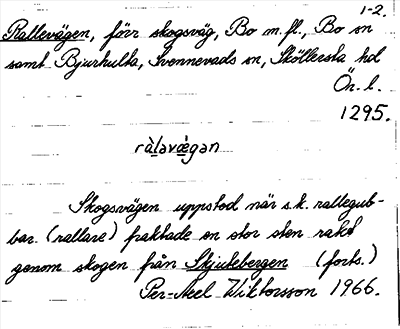 1-2.
Rallevägen, förr skogsväg, Bo m.fl., Bo sn
samt Bjurhulta, Svennevads sn, Sköllersta hd
Ön. l.
1295.
ràlavæ̀gan
Skogsvägen uppstod när s.k. rallegub-
bar (rallare) fraktade en stor sten rakt
genom skogen från Skjutebergen (forts.)
Per-Axel Wiktorsson 1966.